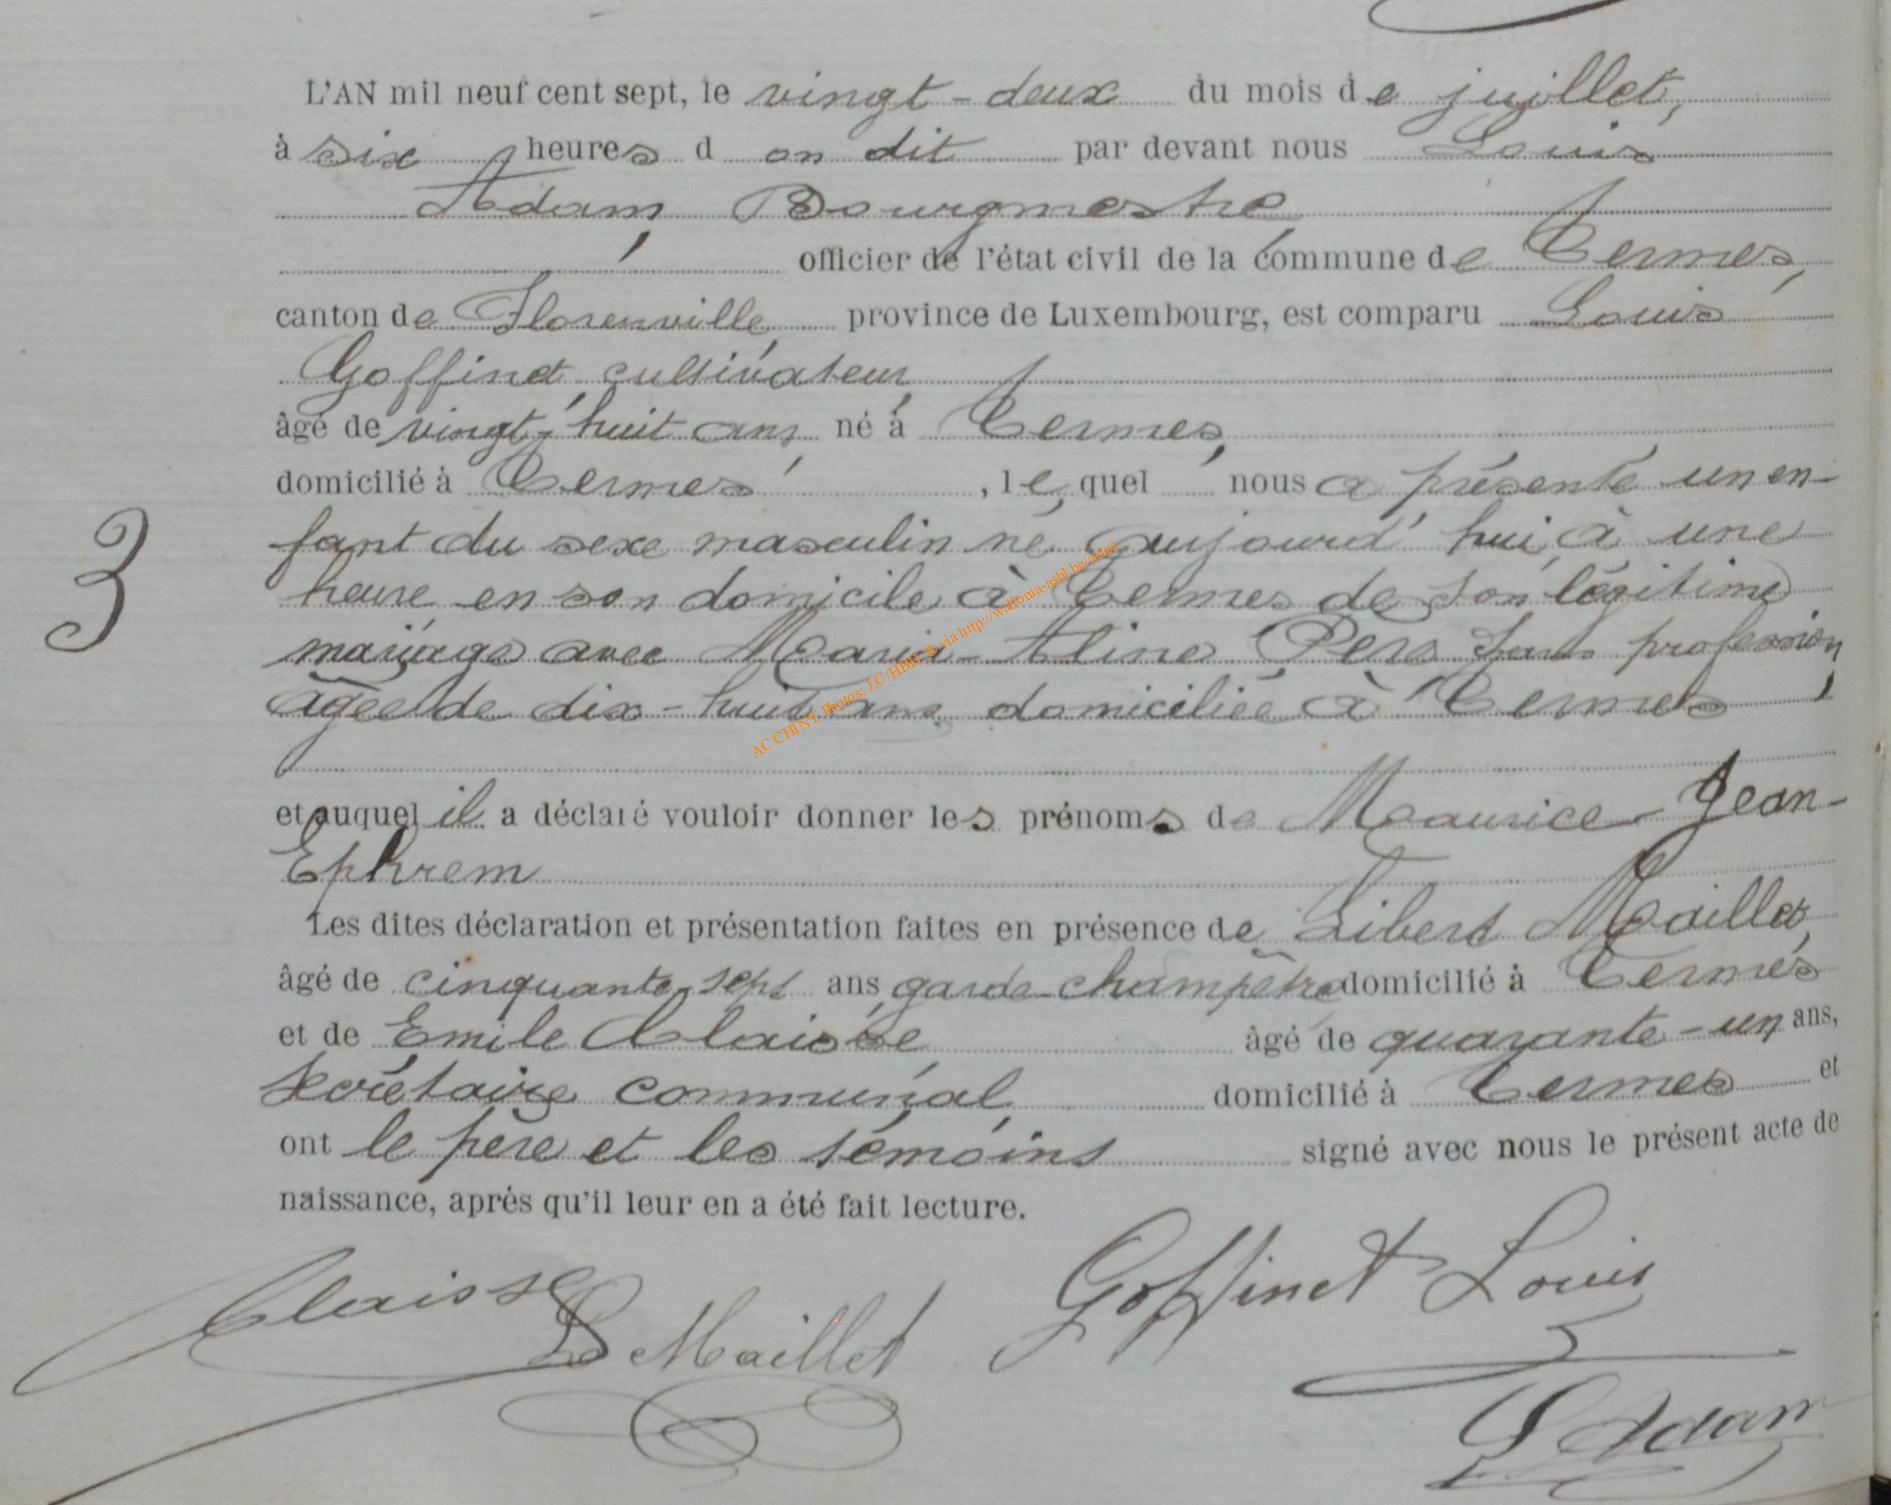 L'AN mil neuf cent sept, le vingt-deux du mois de juillet,
à six heures d on dit par devant nous Louis
Adam, Bourgmestre,
officier de l'état civil de la commune de Termes,
canton de Florenville, province de Luxembourg, est comparu Louis
Goffinet, cultivateur,
âgé de vingt-huit ans, né à Termes,
domicilié à Termes, lequel nous a présenté un en-
fant du sexe masculin né aujourd'hui, à une
heure en son domicile à Termes de son légitime
mariage avec Maria-Aline Pers sans profession,
âgée de dix-huit ans domiciliée à Termes
et auquel il a déclaré vouloir donner les prénoms de Maurice-Jean-
Ephrem
Les dites déclaration et présentation faites en présence de Libert Maillet,
âgé de cinquante-sept ans, garde-champêtre domicilié à Termes
et de Emile Claisse âgé de quarante-un ans,
secrétaire communal domicilié à Termes et
ont le père et les témoins signé avec nous le présent acte de
naissance, après qu'il leur en a été fait lecture.
3
AC CHINY Photos: J.C/HBH © via http://wallonia-asbl.be/aktes
Claisse
L Maillet
Goffinet Louis
L Adam